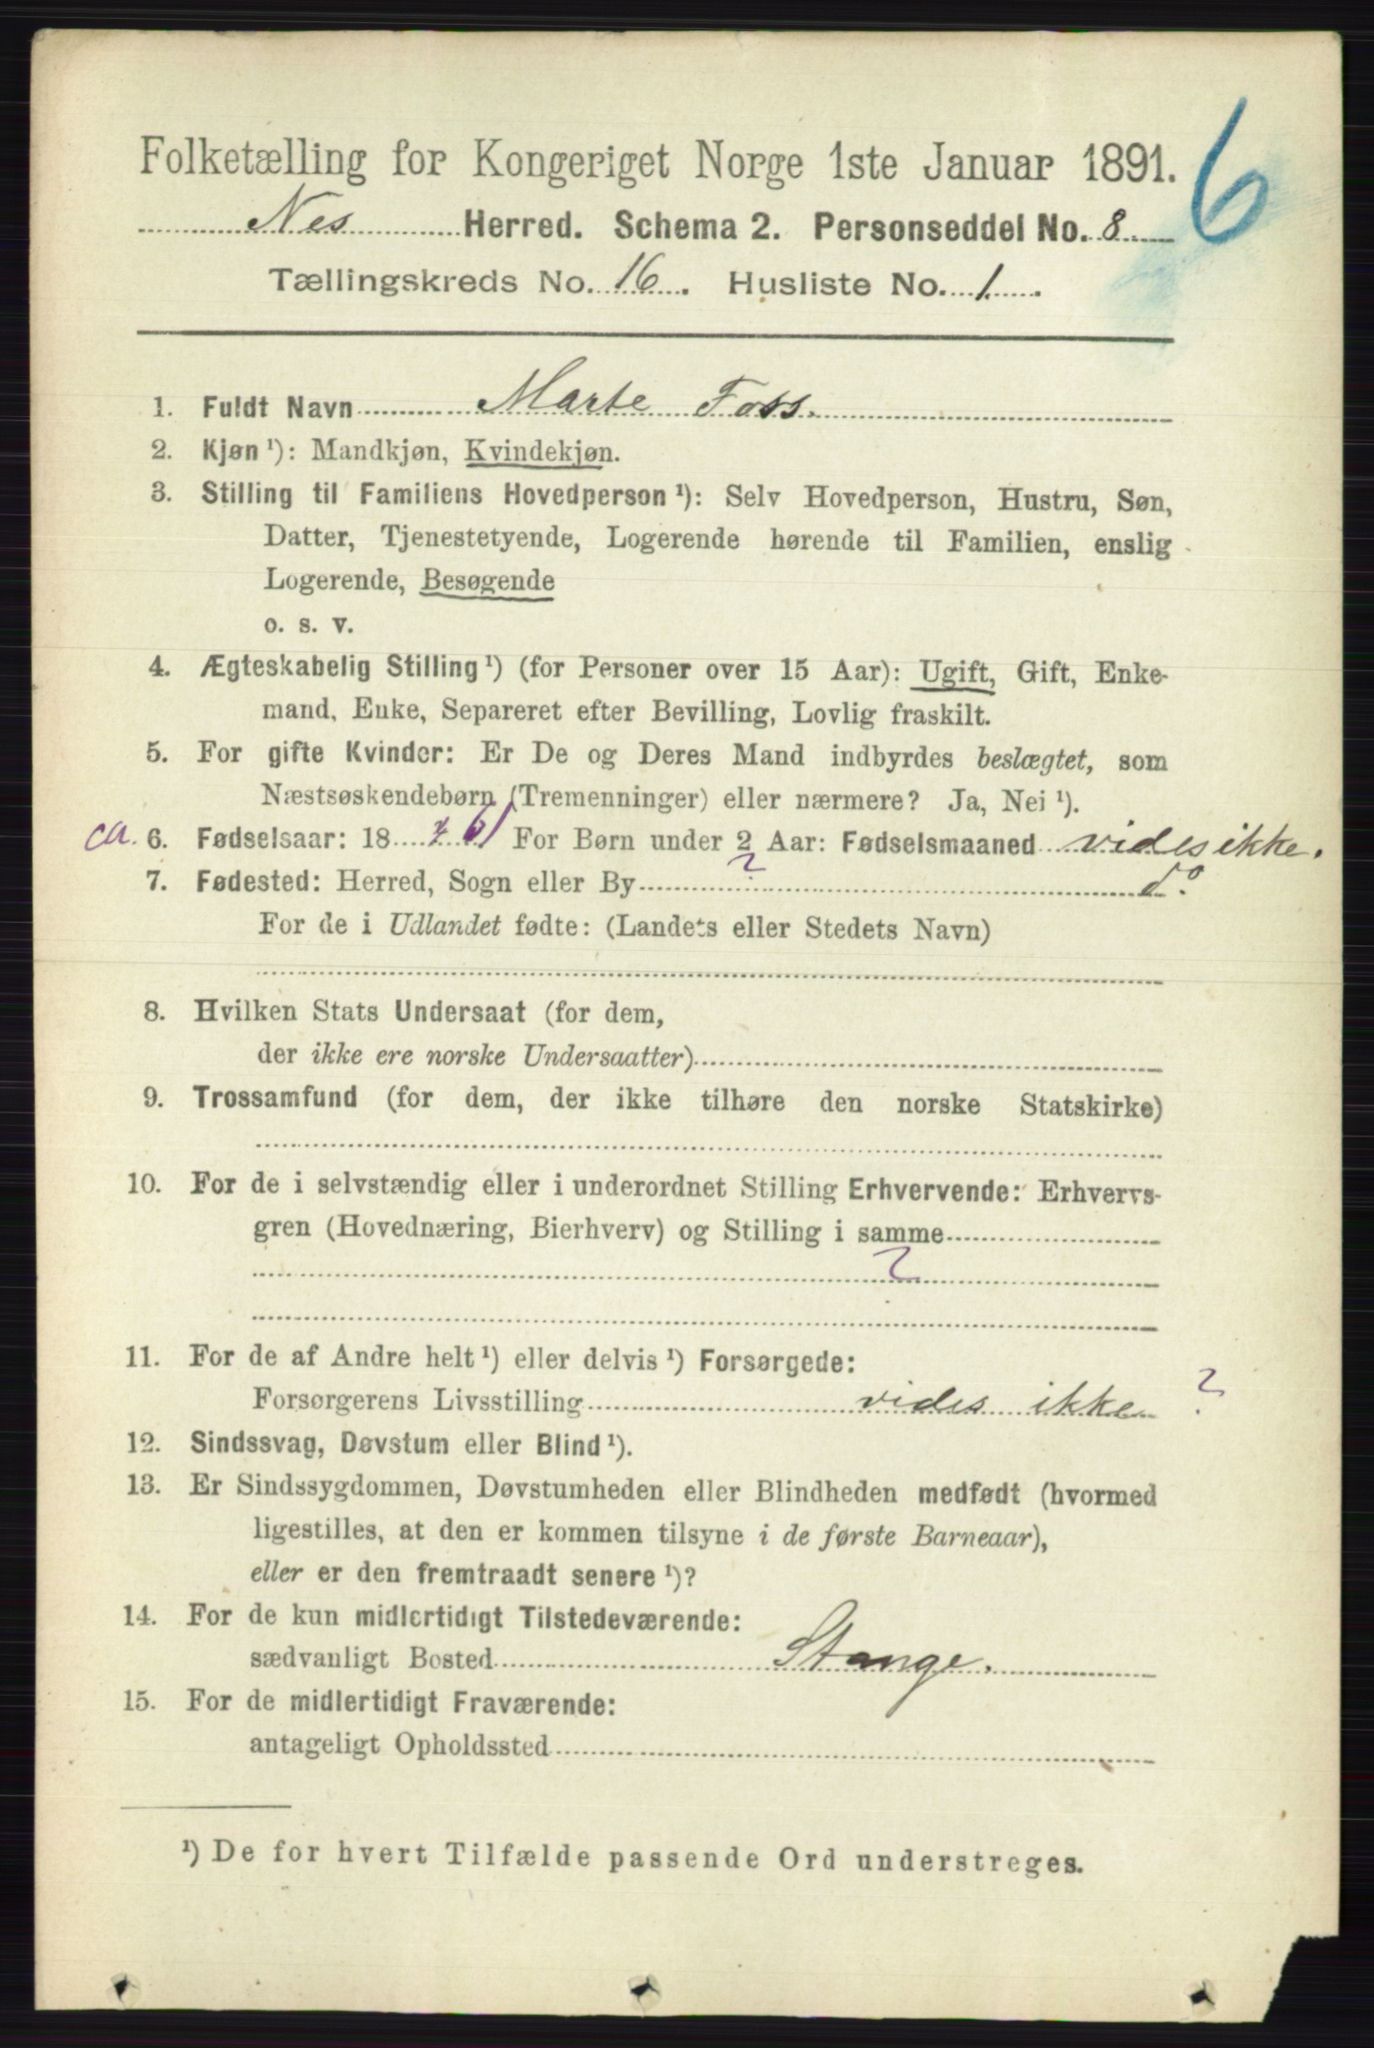 Folketælling for Kongeriget Norge 1ste Januar 1891.
6
Nes Herred. Schema 2. Personseddel No. 8
Tællingskreds No. 16. Husliste No. 1.
1. Fuldt Navn Marte Foss.
2. Kjøn ¹): Mandkjøn, Kvindekjøn.
3. Stilling til Familiens Hovedperson ¹): Selv Hovedperson, Hustru, Søn,
Datter, Tjenestetyende, Logerende hørende til Familien, enslig
Logerende, Besøgende
o. s. v.
4. Ægteskabelig Stilling ¹) (for Personer over 15 Aar): Ugift, Gift, Enke-
mand, Enke, Separeret efter Bevilling, Lovlig fraskilt.
5. For gifte Kvinder: Er De og Deres Mand indbyrdes beslægtet, som
Næstsøskendebørn (Tremenninger) eller nærmere? Ja, Nei ¹).
ca. 6. Fødselsaar: 18 For Børn under 2 Aar: Fødselsmaaned vides ikke.
7. Fødested: Herred, Sogn eller By ? do.
For de i Udlandet fødte: (Landets eller Stedets Navn)
8. Hvilken Stats Undersaat (for dem,
der ikke ere norske Undersaatter)
9. Trossamfund (for dem, der ikke tilhøre den norske Statskirke)
10. For de i selvstændig eller i underordnet Stilling Erhvervende: Erhvervs-
gren (Hovednæring, Bierhverv) og Stilling i samme
?
11. For de af Andre helt ¹) eller delvis ¹) Forsørgede:
Forsørgerens Livsstilling vides ikke ?
12. Sindssvag, Døvstum eller Blind ¹).
13. Er Sindssygdommen, Døvstumheden eller Blindheden medfødt (hvormed
ligestilles, at den er kommen tilsyne i de første Barneaar),
eller er den fremtraadt senere ¹)?
14. For de kun midlertidigt Tilstedeværende:
sædvanligt Bosted Stange.
15. For de midlertidigt Fraværende:
antageligt Opholdssted
¹) De for hvert Tilfælde passende Ord understreges.